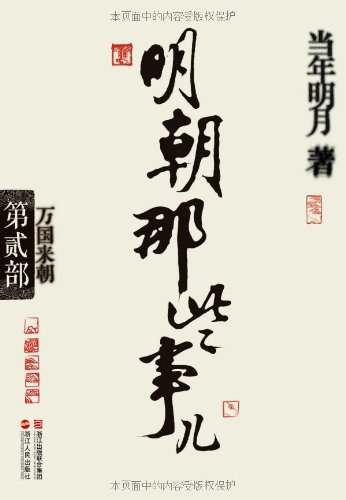 本页面中的内容受版权保护
当年明月 著
明朝那些事儿
万国来朝
第贰部
浙江出版联合集团
浙江人民出版社
本页面中的内容受版权保护